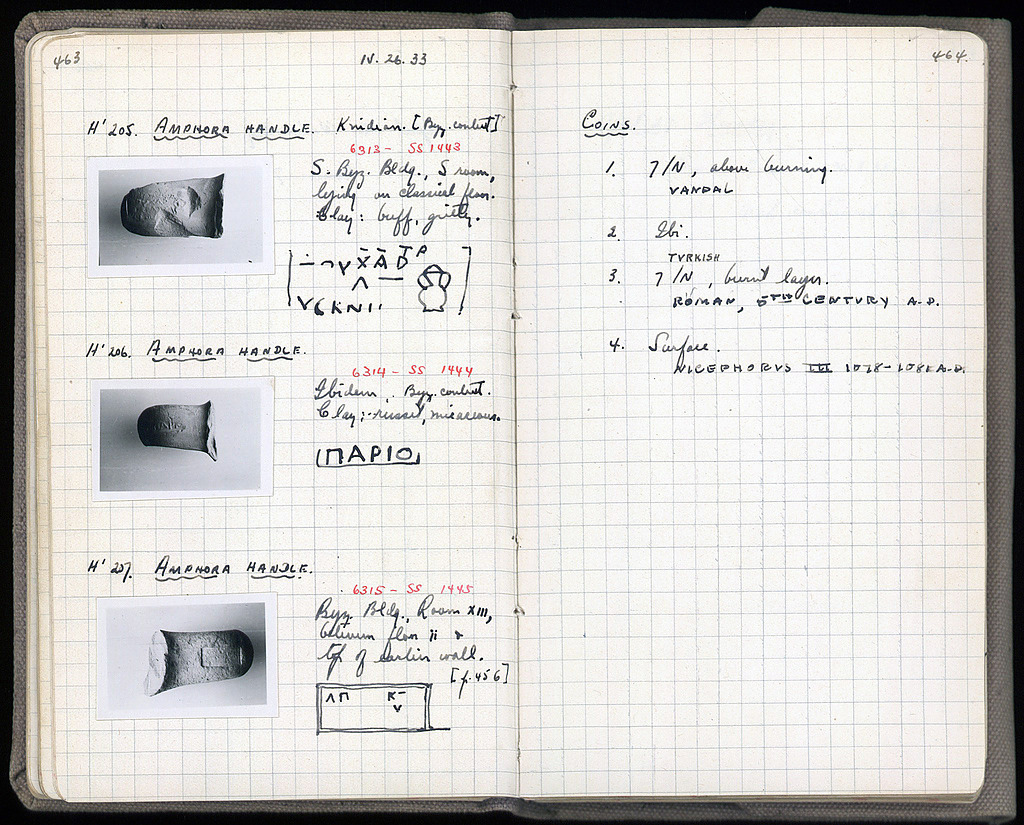 463
IV. 26. 33
H' 205. AMPHORA HANDLE. Knidian. [Byz. context]
6313 - SS 1443
S. Byz. Bldg., S room,
lying on classical floor.
Clay: buff, gritty.
H' 206. AMPHORA HANDLE.
6314 - SS 1444
Ibidem, Byz. context.
Clay: russet, micaceous.
ΠΑΡΙΟ
H' 207. AMPHORA HANDLE.
6315 - SS 1445
Byz. Bldg., Room XIII,
between floor ii &
top of earlier wall.
[p. 456]
ΛΠ Κ
464.
COINS.
1. 7/N, above burning.
VANDAL
2. Ibi.
TVRKISH
3. 7/N, burnt layer.
ROMAN, 5TH CENTURY A.D.
4. Surface.
NICEPHORVS III 1078-1081 A.D.